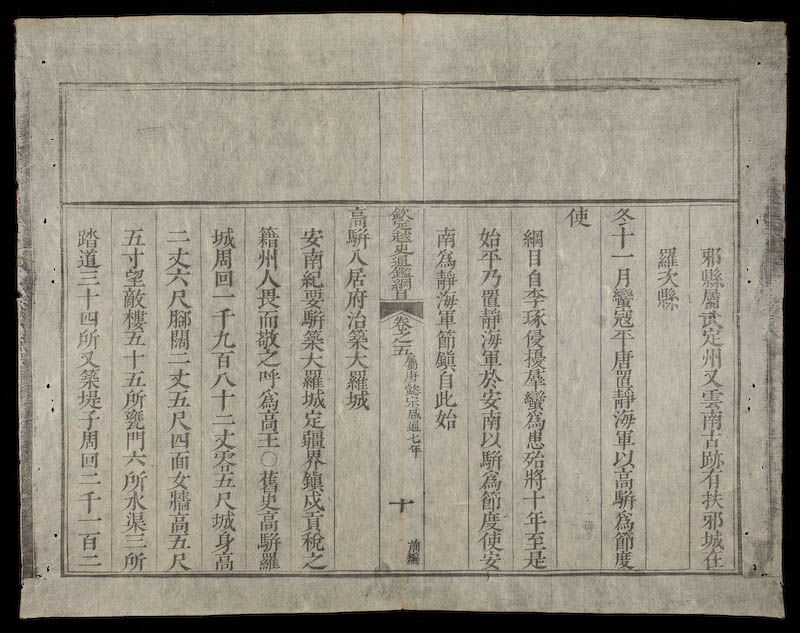 邪縣屬武定州又雲南古跡有扶邪城在
羅次縣
冬十一月蠻寇平唐置靜海軍以高駢爲節度
使
綱目自李琢侵擾羣蠻爲患殆將十年至是
始平乃置靜海軍於安南以駢爲節度使安
南爲靜海軍節鎮自此始
欽定越史通鑑綱目 卷之五 屬唐懿宗咸通七年 十 前編
高駢入居府治築大羅城
安南紀要駢築大羅城定疆界鎮戍貢稅之
籍州人畏而敬之呼爲高王○舊史高駢羅
城周回一千九百八十二丈零五尺城身高
二丈六尺腳闊二丈五尺四面女牆高五尺
五寸望敵樓五十五所甕門六所水渠三所
踏道三十四所又築堤子周回二千一百二